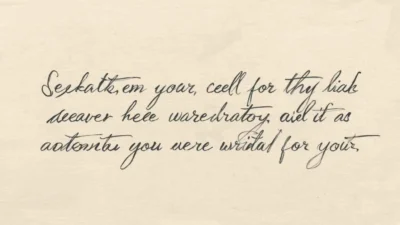 Seskatt,em your, ceell for thy liak
deeaver heee waredratoy, aid it as
aotomitu you were writal for your,